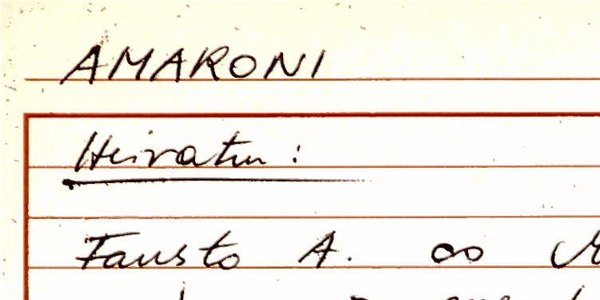 AMARONI
Heiraten :
Fausto A. ∞